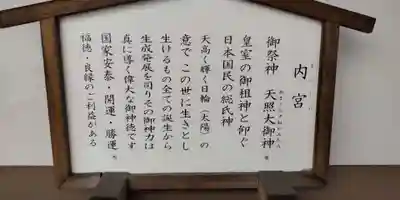 内宮
御祭神 天照大御神
あまてらすおおみかみ
皇室の御祖神と仰ぐ
日本国民の総氏神
天高く輝く日輪（太陽）の
意で この世に生きとし
生けるもの全ての誕生から
生成発展を司りその御神力は
真に導く偉大な御神徳です
国家安泰・開運・勝運
福徳・良縁のご利益がある